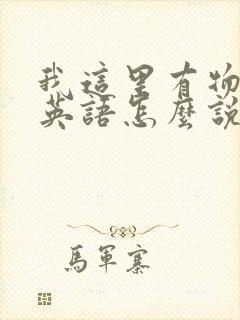 我這里有物
英語怎麼說
馬軍寨